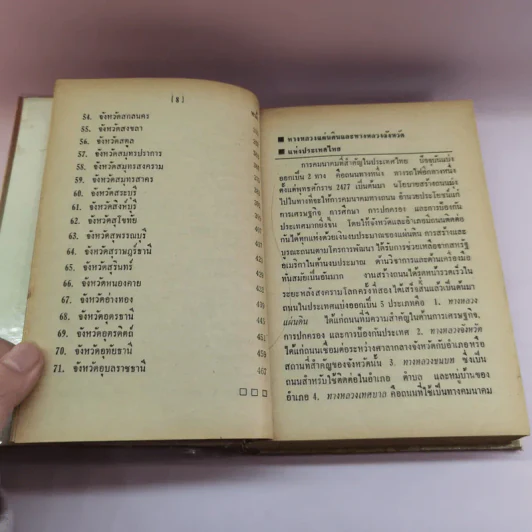 (8)
หน้า
54. จังหวัดสกลนคร
55. จังหวัดสงขลา
56. จังหวัดสตูล
57. จังหวัดสมุทรปราการ
58. จังหวัดสมุทรสงคราม
59. จังหวัดสมุทรสาคร
60. จังหวัดสระบุรี
61. จังหวัดสิงห์บุรี
62. จังหวัดสุโขทัย
63. จังหวัดสุพรรณบุรี
64. จังหวัดสุราษฎร์ธานี
65. จังหวัดสุรินทร์
66. จังหวัดหนองคาย
67. จังหวัดอ่างทอง
68. จังหวัดอุดรธานี 445
69. จังหวัดอุตรดิตถ์ 451
70. จังหวัดอุทัยธานี 459
71. จังหวัดอุบลราชธานี 462
ทางหลวงแผ่นดินและทางหลวงจังหวัด
แห่งประเทศไทย
การคมนาคมที่สำคัญในประเทศไทย ปัจจุบันแบ่ง
ออกเป็น 2 ทาง คือถนนทางหนึ่ง ทางรถไฟอีกทางหนึ่ง
ตั้งแต่พุทธศักราช 2477 เป็นต้นมา นโยบายสร้างถนนมุ่ง
ไปในทางที่จะให้การคมนาคมทางถนน อำนวยประโยชน์แก่
การเศรษฐกิจ การศึกษา การปกครอง และการป้องกัน
ประเทศมากยิ่งขึ้น โดยให้จังหวัดและอำเภอมีถนนติดต่อ
กันได้ทุกแห่งด้วยเงินงบประมาณของแผ่นดิน การสร้างและ
บูรณะถนนตามโครงการพัฒนา ได้รับการช่วยเหลือจากสหรัฐ
อเมริกาในด้านงบประมาณ ด้านวิชาการและด้านเครื่องมือ
ทันสมัยเป็นอันมาก งานสร้างถนนได้รุดหน้ารวดเร็วใน
ระยะหลังสงครามโลกครั้งที่สองได้เสร็จสิ้นแล้วเป็นอันมาก
ถนนในประเทศแบ่งออกเป็น 5 ประเภทคือ 1. ทางหลวง
แผ่นดิน ได้แก่ถนนที่มีความสำคัญในด้านการเศรษฐกิจ,
การปกครอง และการป้องกันประเทศ 2. ทางหลวงจังหวัด
ได้แก่ถนนเชื่อมต่อระหว่างศาลากลางจังหวัดกับอำเภอหรือ
สถานที่สำคัญของจังหวัดนั้น 3. ทางหลวงชนบท ซึ่งเป็น
ถนนสำหรับใช้ติดต่อในอำเภอ ตำบล และหมู่บ้านของ
อำเภอ 4. ทางหลวงเทศบาล คือถนนที่ใช้เป็นทางคมนาคม